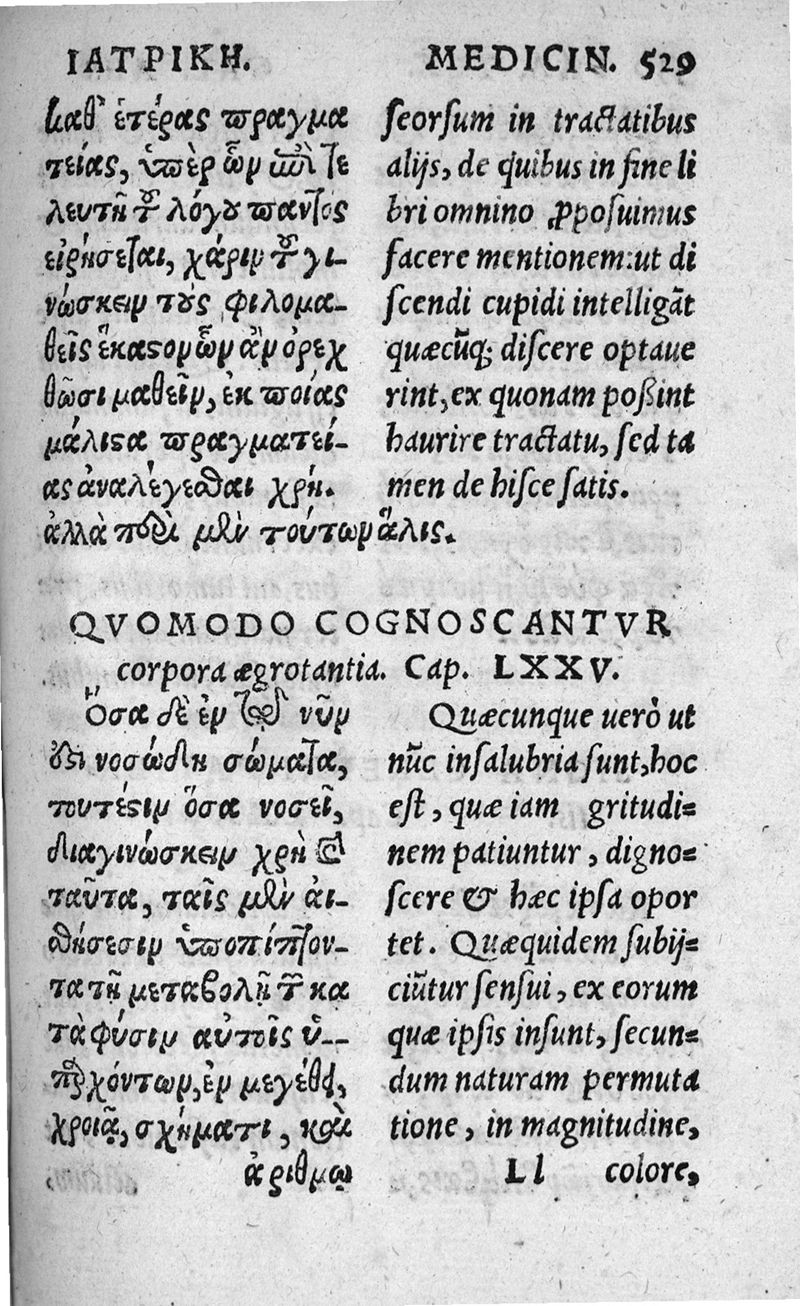 ΙΑΤΡΙΚΗ.
καθ' ἑτέρας πραγμα
τείας, ὑπὲρ ὧν ἐπὶ τε
λευτῇ τοῦ λόγου παντὸς
εἰρήσεται, χάριν τοῦ γι-
νώσκειν τοὺς φιλομα-
θεῖς ἕκαστον ὧν ἂν ὀρεχ
θῶσι μαθεῖν, ἐκ ποίας
μάλιστα πραγματεί-
ας ἀναλέγεσθαι χρή.
ἀλλὰ περὶ μὲν τούτων ἅλις.
MEDICIN. 529
seorsum in tractatibus
alijs, de quibus in fine li
bri omnino ꝓposuimus
facere mentionem: ut di
scendi cupidi intelligāt
quæcūq; discere optaue
rint, ex quonam possint
haurire tractatu, sed ta
men de hisce satis.
QVOMODO COGNOSCANTVR
corpora ægrotantia. Cap. LXXV.
Ὅσα δὲ ἐν τῷ νῦν
ἤδη νοσώδη σώματα,
τουτέστιν ὅσα νοσεῖ,
διαγινώσκειν χρὴ καὶ
ταῦτα, ταῖς μὲν αἰ-
σθήσεσιν ὑποπίπτον-
τα τῇ μεταβολῇ τῶν κα
τὰ φύσιν αὐτοῖς ὑ--
παρχόντων, ἐν μεγέθει,
χροιᾷ, σχήματι, καὶ
ἀριθμῷ
Quæcunque uerò ut
nūc insalubria sunt, hoc
est, quæ iam gritudi=
nem patiuntur, digno=
scere & hæc ipsa opor
tet. Quæquidem subij=
ciūtur sensui, ex eorum
quæ ipsis insunt, secun=
dum naturam permuta
tione, in magnitudine,
Ll colore,